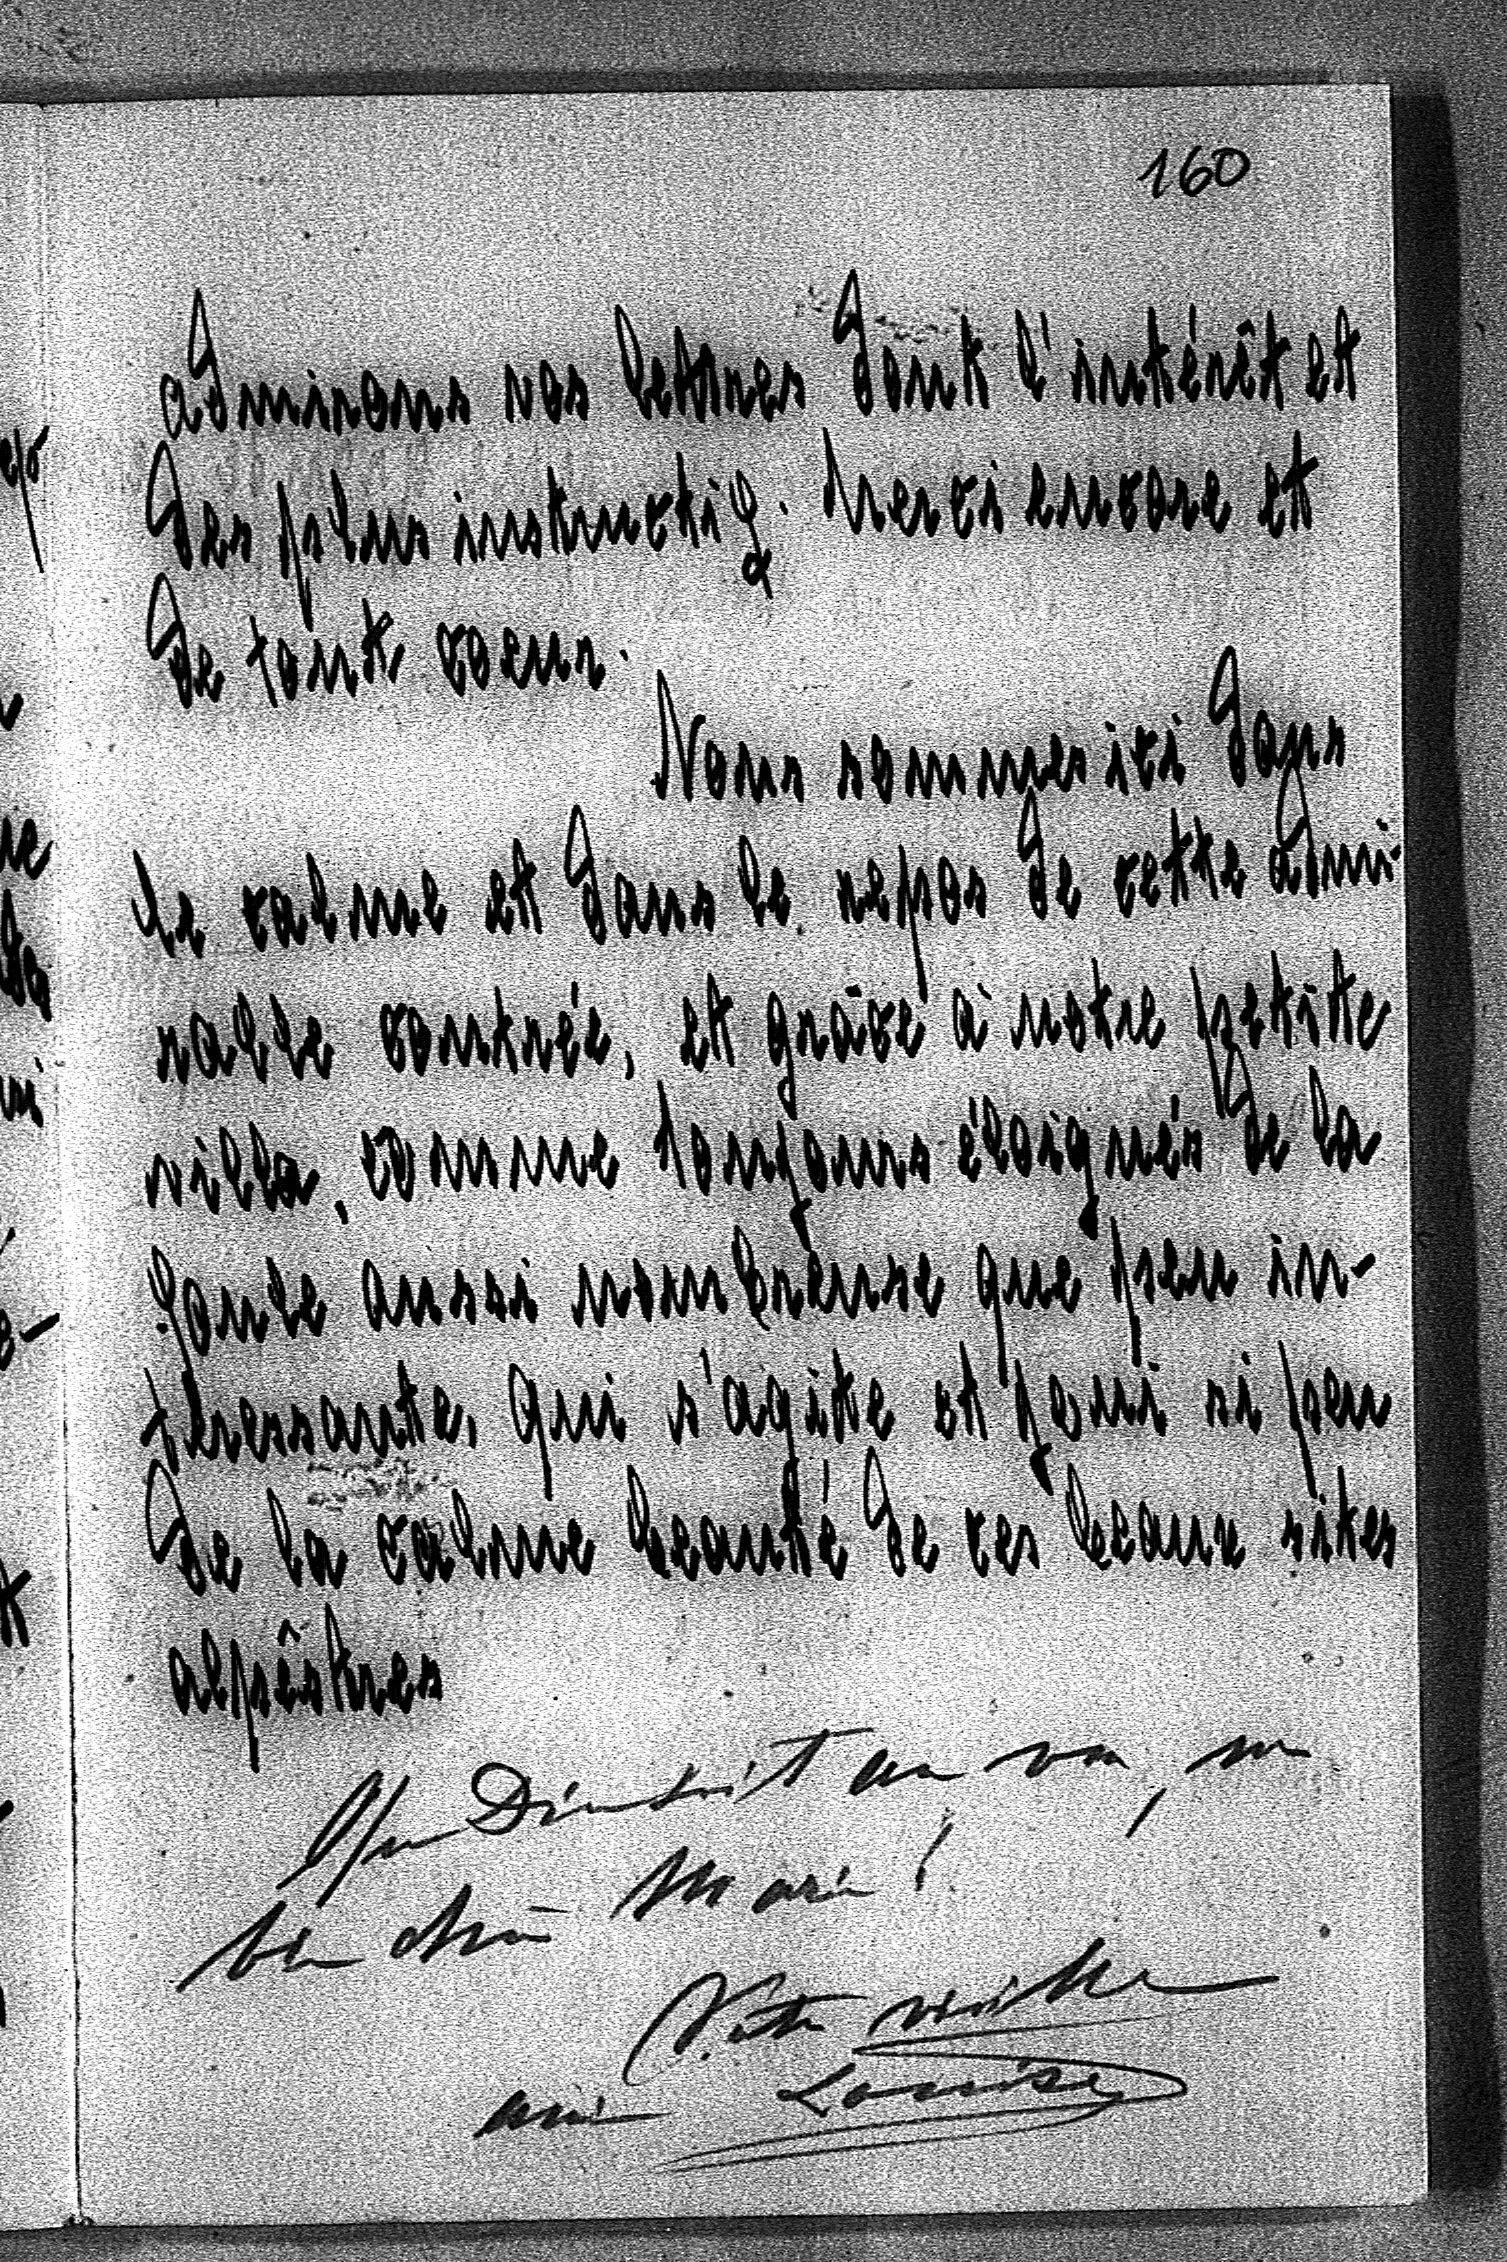 160
admirons vos lettres dont l'intérêt et
des plus instructif. Merci encore et
de tout coeur.
Nous sommes ici dans
le calme et dans le repos de cette admi-
rable contrée, et grâce à notre petite
villa, comme toujours éloignés de la
foule aussi nombreuse que peu in-
teressante, qui s'agite et joui si peu
de la calme beauté de ces beaux sites
alpêstres
bien chère Marie!
Votre vieille
amie Louise